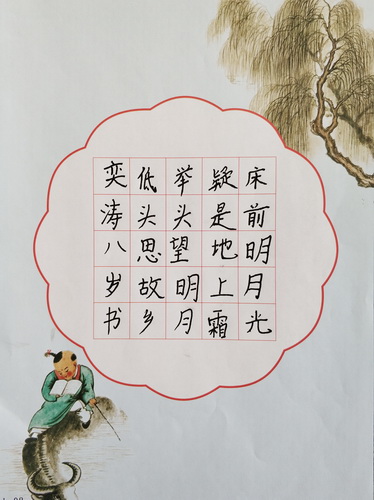 床前明月光
疑是地上霜
举头望明月
低头思故乡
奕涛八岁书